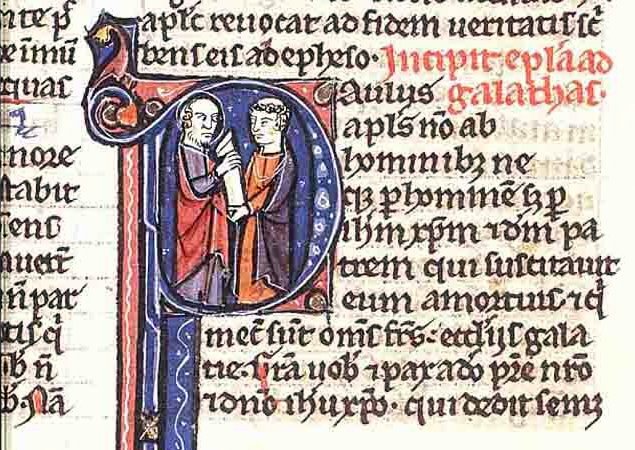 quas
nore
tabit
apl̄s reuocat ad fidem ueritatis sc̄
bens eis ab epheso. Incipit epl̄a ad
PAulus galathas.
apl̄s nō ab
hominibꝫ ne
qꝫ p hominē sꝫ p
ihm xp̄m ⁊ dm̄ pa
trem qui suscitauit
eum a mortuis ⁊ q̄
mec̄ sūt om̄s fr̄s: eccl̄iis gala
tie. Gr̄a uob ⁊ pax a do pr̄e nr̄o
⁊ dn̄o ihu xp̄o. qui dedit semꝫ